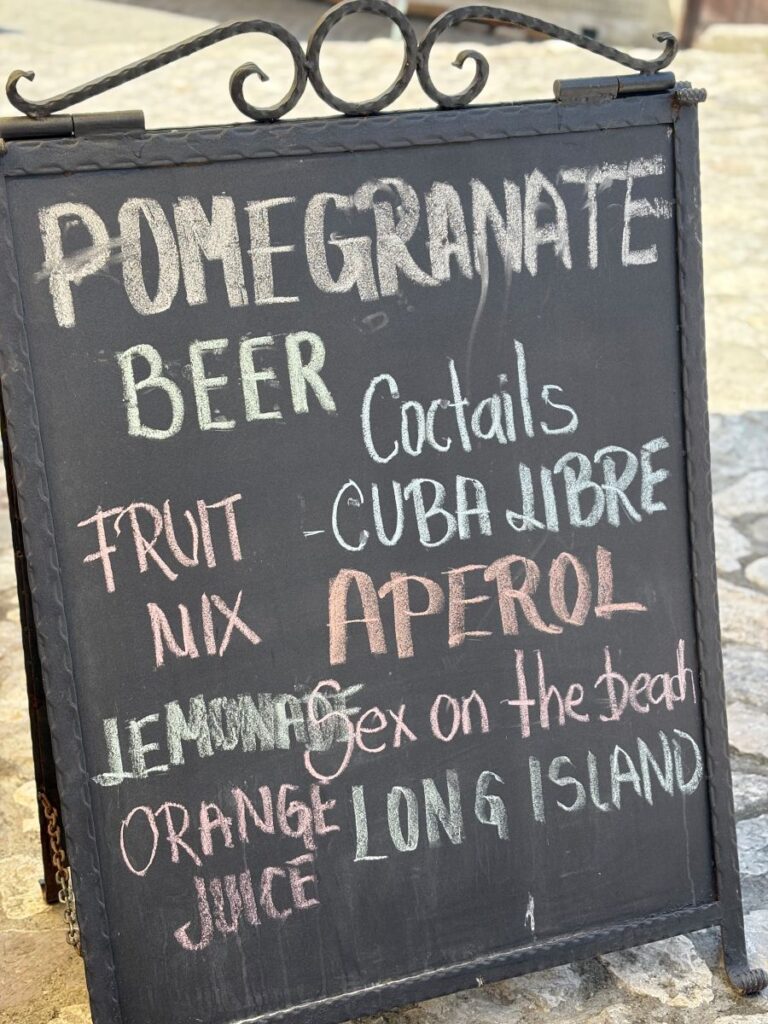 POMEGRANATE
BEER
Coctails
-CUBA LIBRE
FRUIT
NIX
APEROL
LEMONADE
Sex on the beach
ORANGE
JUICE
LONG ISLAND